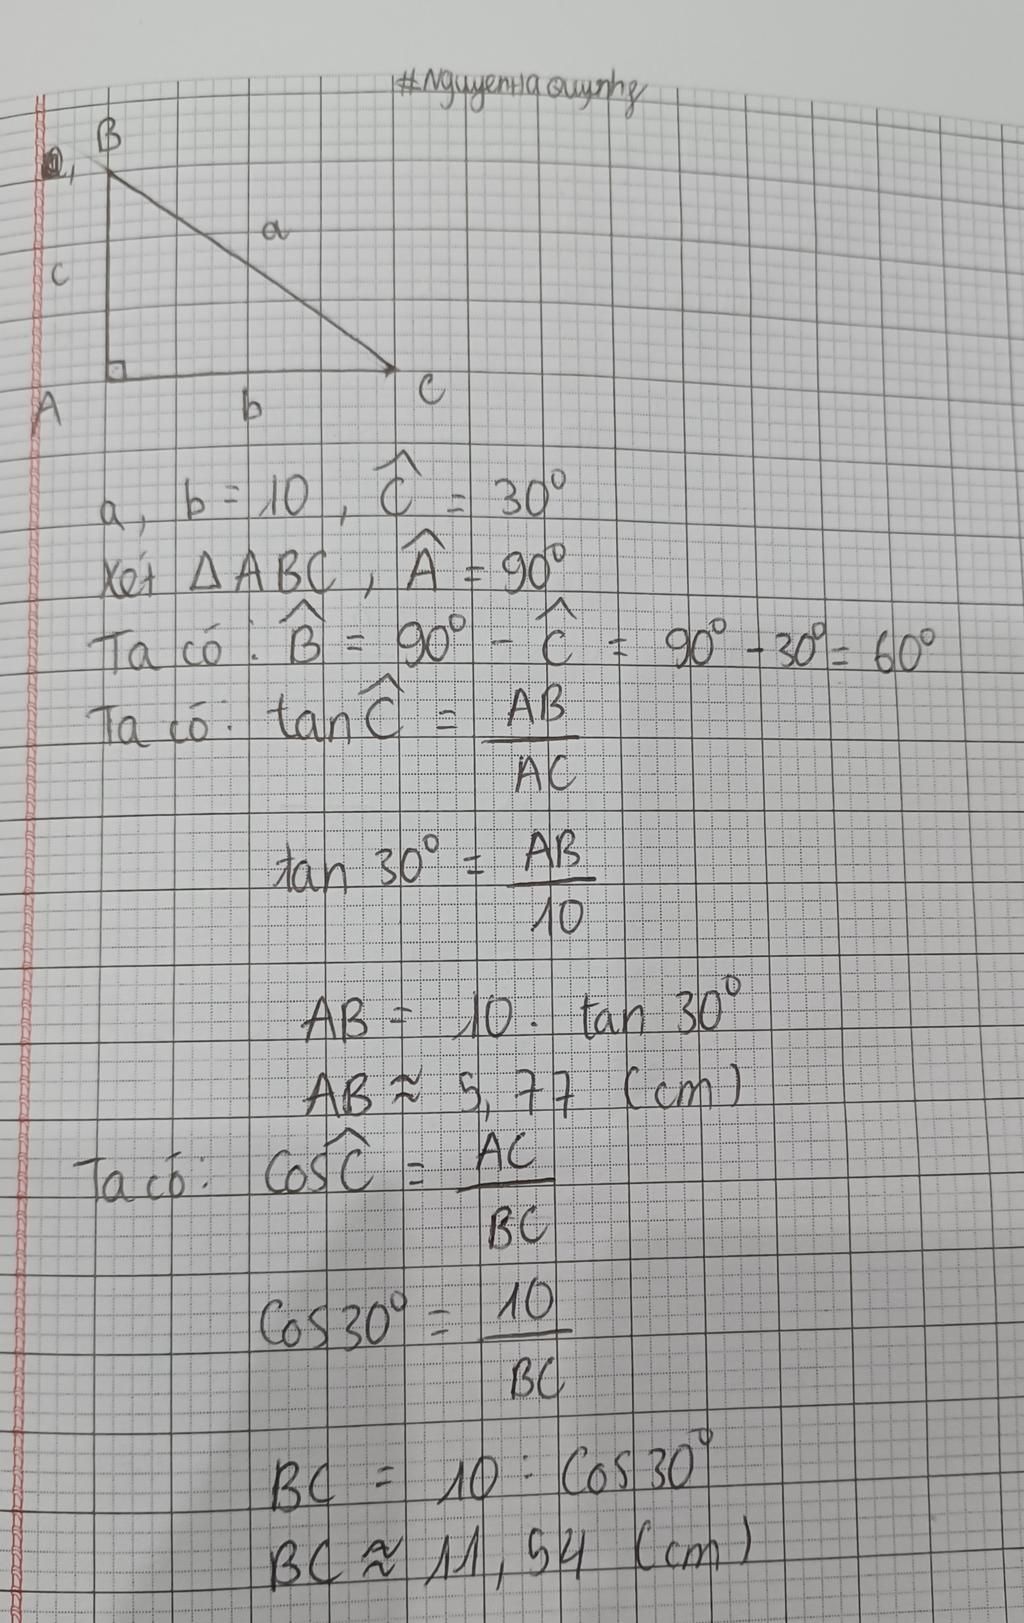 #NguyenHaQuynhg
B
a
c
A
b
C
a, b = 10, Ĉ = 30°
Xét ΔABC, Â = 90°
Ta có: B̂ = 90° - Ĉ = 90° - 30° = 60°
Ta có: tan Ĉ = AB/AC
tan 30° = AB/10
AB = 10 . tan 30°
AB ≈ 5,77 (cm)
Ta có: Cos Ĉ = AC/BC
Cos 30° = 10/BC
BC = 10 : Cos 30°
BC ≈ 11,54 (cm)